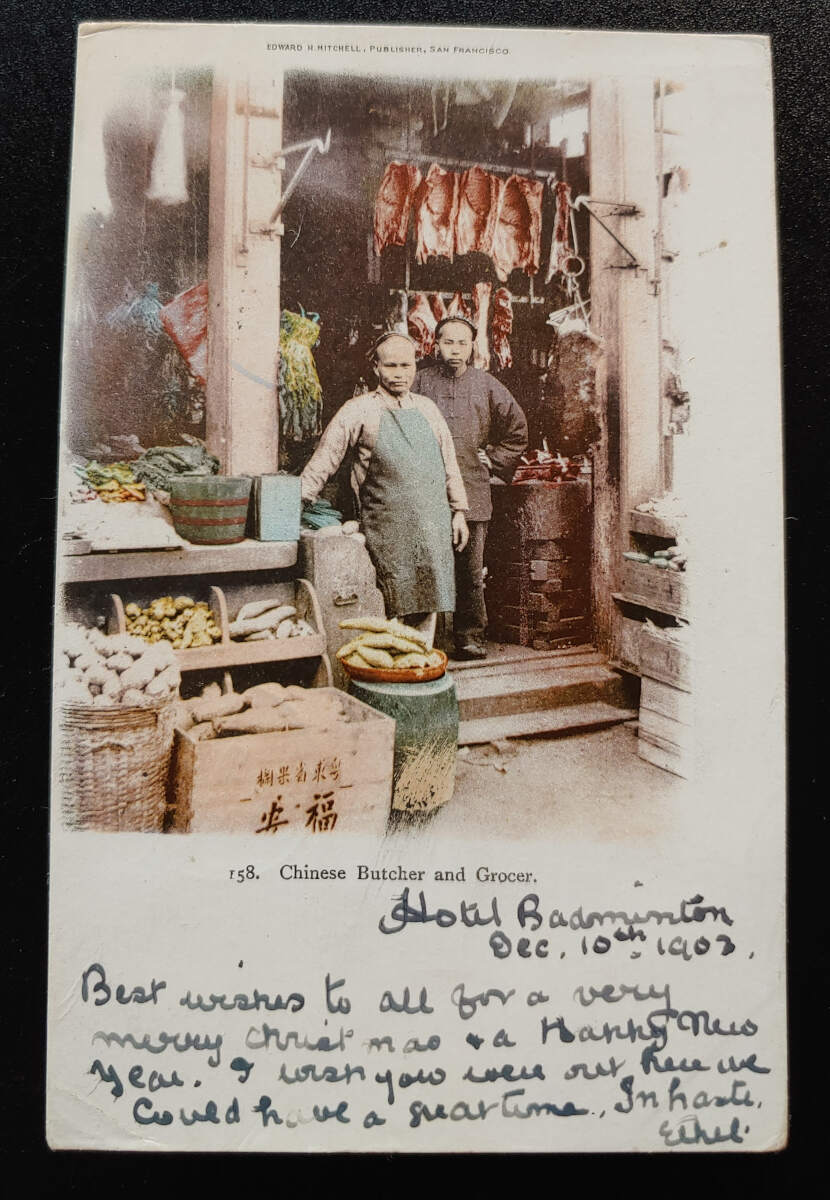 EDWARD H. MITCHELL, PUBLISHER, SAN FRANCISCO.
福
158. Chinese Butcher and Grocer.
Hotel Badminton
Dec. 10th 1903.
Best wishes to all for a very
merry Christmas + a Happy New
Year. I wish you were out here we
Could have a great time., In haste.
Ethel.